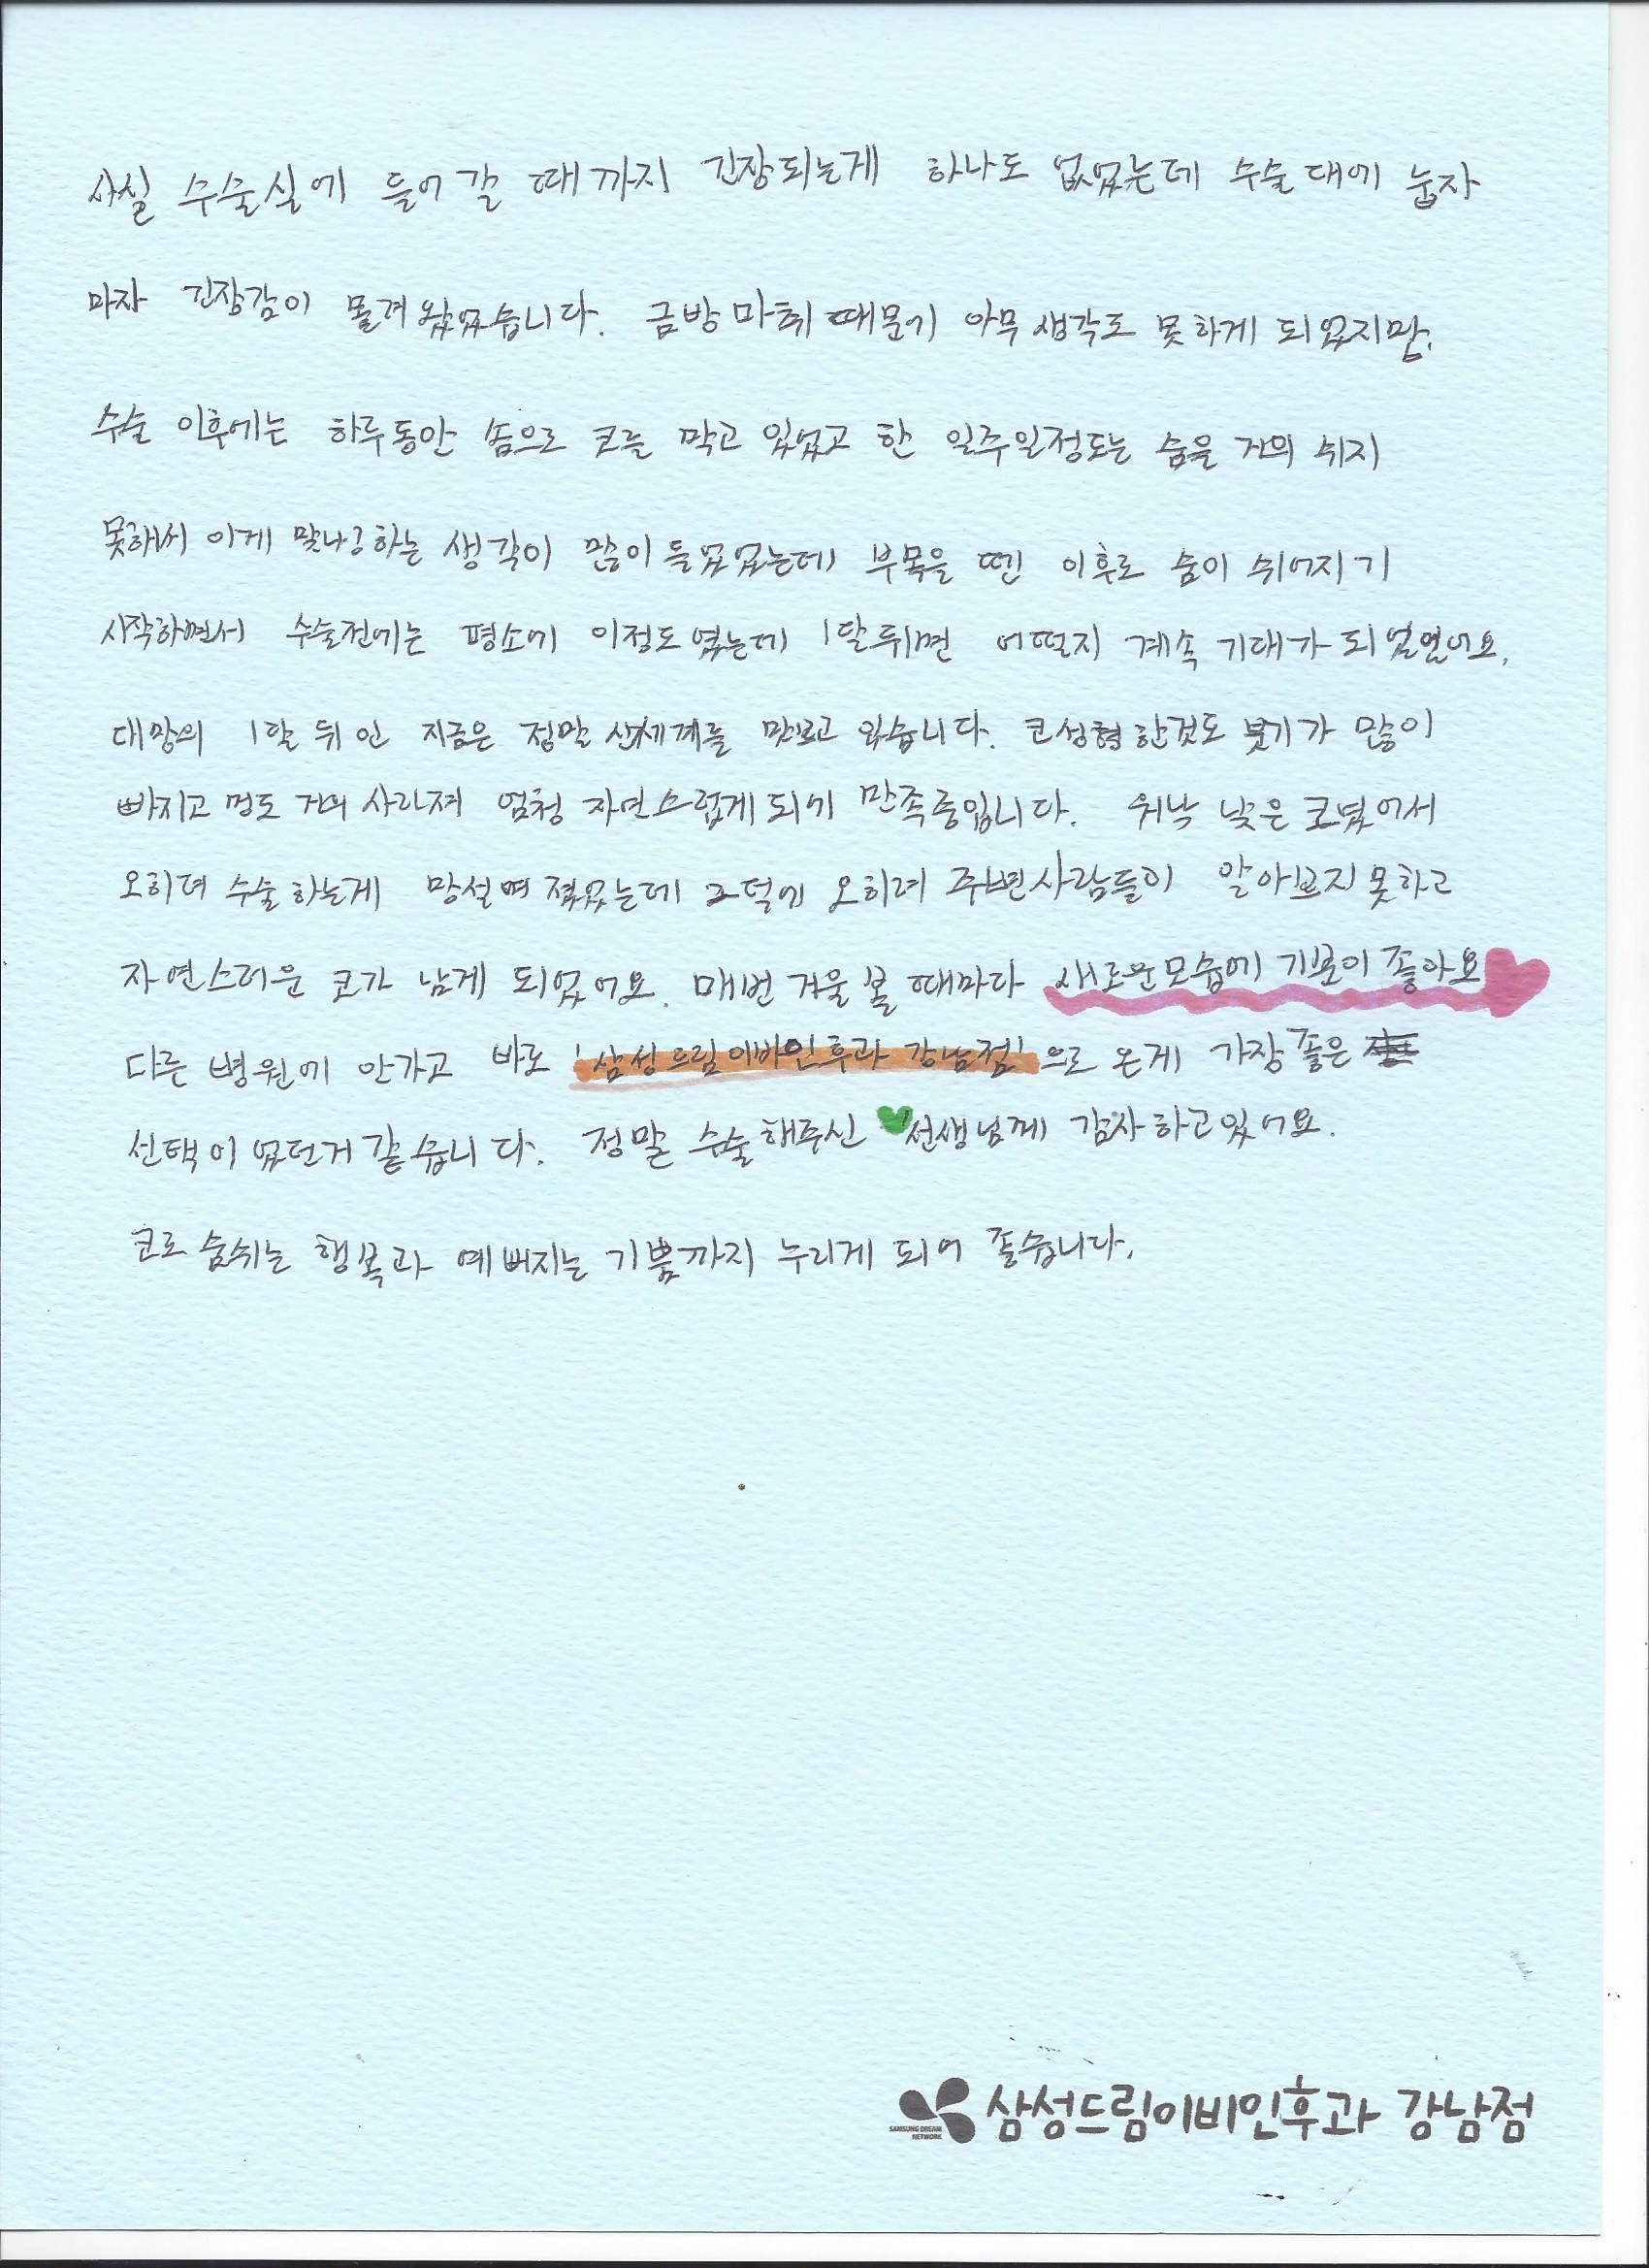 사실 수술실에 들어갈 때까지 긴장되는게 하나도 없었는데 수술대에 눕자
마자 긴장감이 몰려왔었습니다. 금방 마취 때문에 아무생각도 못하게 되었지만.
수술 이후에는 하루동안 솜으로 코를 막고 있었고 한 일주일정도는 숨을 거의 쉬지
못해서 이게 맞나?하는 생각이 많이 들었었는데 부목을 뗀 이후로 숨이 쉬어지기
시작하면서 수술전에는 평소에 이정도였는데 1달뒤면 어떨지 계속 기대가 되었었어요.
대망의 1달 뒤인 지금은 정말 신세계를 맛보고 있습니다. 코성형한것도 붓기가 많이
빠지고 멍도 거의 사라져 엄청 자연스럽게되어 만족중입니다. 워낙 낮은 코였어서
오히려 수술하는게 망설여졌었는데 그덕에 오히려 주변사람들이 알아보지못하고
자연스러운 코가 남게 되었어요. 매번 거울볼 때마다 새로운모습에 기분이 좋아요
다른 병원에 안가고 바로 '삼성드림이비인후과 강남점'으로 온게 가장 좋은
선택이었던거 같습니다. 정말 수술해주신 선생님께 감사하고있어요.
코로 숨쉬는 행복과 예뻐지는 기쁨까지 누리게 되어 좋습니다.
SAMSUNG DREAM
NETWORK
삼성드림이비인후과 강남점